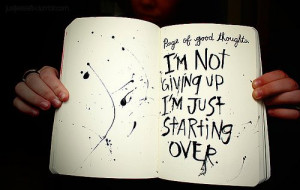 Page of good thoughts.
I'M NOT
GIVING UP
I'M JUST
STARTING
OVER.